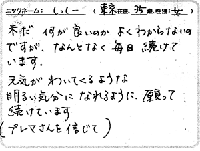 ニックネーム: しっしー (東京在住、35歳、性別:女)
未だ 何が良いのか よくわからないの
ですが、なんとなく毎日 続けて
います。
元気がわいてくるような
明るい気分になれるように、願って
続けています
(プレマさんを信じて)